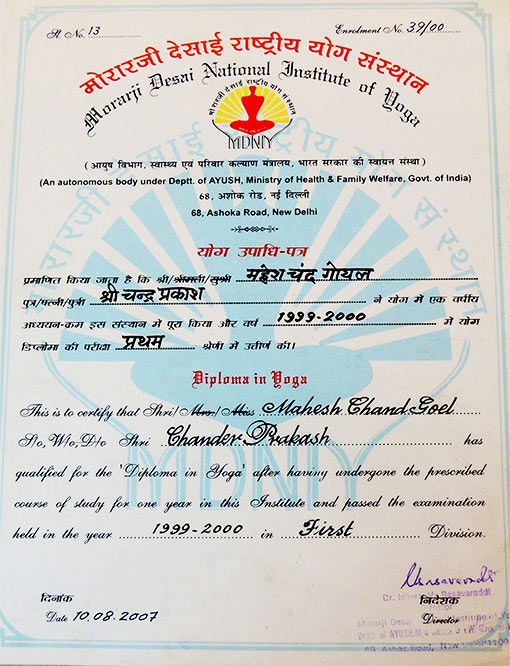 Sl. No. 13
Enrolment No. 39/00
मोरारजी देसाई राष्ट्रीय योग संस्थान
Morarji Desai National Institute of Yoga
मोरारजी देसाई राष्ट्रीय योग संस्थान
MDNIY
(आयुष विभाग, स्वास्थ्य एवं परिवार कल्याण मंत्रालय, भारत सरकार की स्वायत्त संस्था)
(An autonomous body under Deptt. of AYUSH, Ministry of Health & Family Welfare, Govt. of India)
68, अशोक रोड, नई दिल्ली
68, Ashoka Road, New Delhi
योग उपाधि-पत्र
प्रमाणित किया जाता है कि श्री/श्रीमती/सुश्री महेश चंद गोयल
पुत्र/पत्नी/पुत्री श्री चन्द्र प्रकाश ने योग में एक वर्षीय
अध्ययन-क्रम इस संस्थान में पूरा किया और वर्ष 1999-2000 में योग
डिप्लोमा की परीक्षा प्रथम श्रेणी में उत्तीर्ण की।
Diploma in Yoga
This is to certify that Shri/Mrs./Miss Mahesh Chand Goel
S/o, W/o, D/o Shri Chander Prakash has
qualified for the 'Diploma in Yoga' after having undergone the prescribed
course of study for one year in this Institute and passed the examination
held in the year 1999-2000 in First Division.
दिनांक
Date 10.08.2007
Dr. Basavaraddi
निदेशक
Director
Morarji Desai
Dept. of AYUSH,
68, Ashoka Road, New Delhi